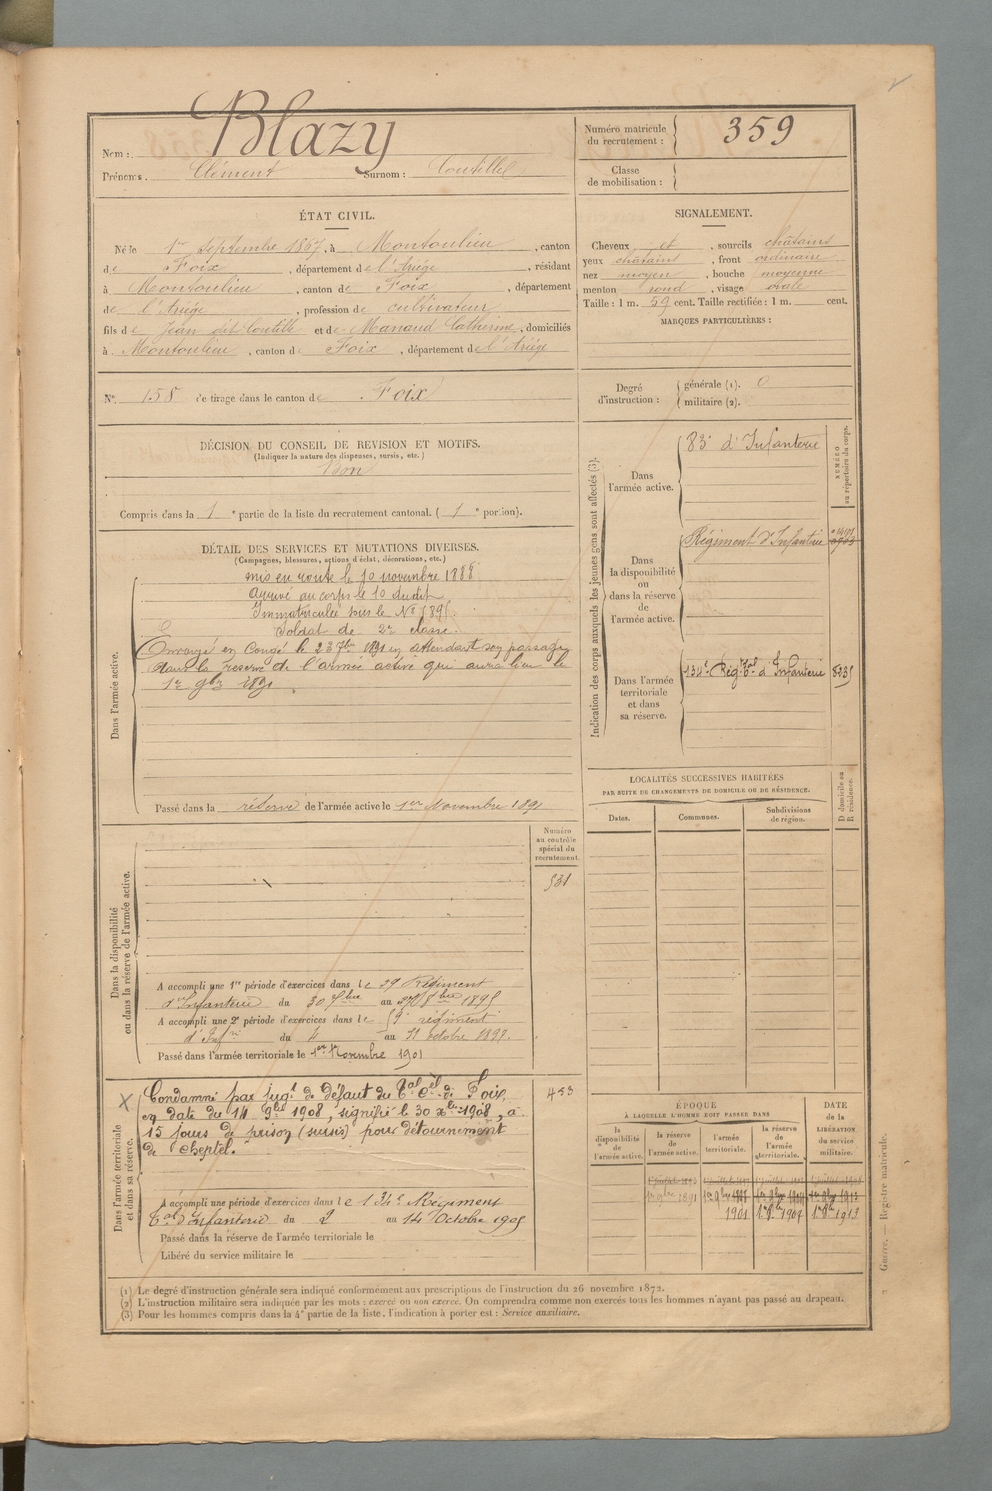 Nom : Blazy
Prénoms. Clément Surnom : Coutillel
Numéro matricule
du recrutement : 359
Classe
de mobilisation :
ÉTAT CIVIL.
Né le 1er septembre 1867, à Montoulieu, canton
de Foix, département de l'Ariège, résidant
à Montoulieu, canton de Foix, département
de l'Ariége, profession de cultivateur
fils de Jean dit Coutille et de Manaud Catherine, domiciliés
à Montoulieu, canton de Foix, département de l'Ariége
SIGNALEMENT.
Cheveux et, sourcils châtains
yeux châtains, front ordinaire
nez moyen, bouche moyenne
menton rond, visage ovale
Taille : 1 m. 59 cent. Taille rectifiée : 1 m. cent.
MARQUES PARTICULIÈRES :
No. 158 de tirage dans le canton de Foix
Degré
d'instruction :
générale (1). 0
militaire (2).
DÉCISION DU CONSEIL DE REVISION ET MOTIFS.
(Indiquer la nature des dispenses, sursis, etc.)
Bon
Compris dans la 1e partie de la liste du recrutement cantonal. (1e portion).
DÉTAIL DES SERVICES ET MUTATIONS DIVERSES.
(Campagnes, blessures, actions d'éclat, décorations, etc.)
Dans l'armée active.
mis en route le 10 novembre 1888
Arrivé au corps le 10 dudit
Immatriculée sous le No
Soldat de 2e classe.
Envoyé en Congé le 23 7bre 1891 en attendant son passage
dans la réserve de l'armée active qui aura lieu le
1er 9bre 1891.
Passé dans la réserve de l'armée active le 1er Novembre 1891
Indication des corps auxquels les jeunes gens sont affectés (3).
NUMÉRO
au répertoire du corps.
Dans
l'armée active.
83e d'Infanterie
Dans
la disponibilité
ou
dans la réserve
de
l'armée active.
Régiment d'Infanterie
Dans l'armée
territoriale
et dans
sa réserve.
134e Régt Tal d'Infanterie
LOCALITÉS SUCCESSIVES HABITÉES
PAR SUITE DE CHANGEMENTS DE DOMICILE OU DE RÉSIDENCE.
Dates.
Communes.
Subdivisions
de région.
D domicile ou
R résidence.
Dans la disponibilité
ou dans la réserve de l'armée active.
Numéro
au contrôle
spécial du
recrutement.
531
A accompli une 1re période d'exercices dans le Régiment
d'Infanterie du 30 7bre au
A accompli une 2e période d'exercices dans le 59e régiment
d'Infrie du 4 au 31 octobre
Passé dans l'armée territoriale le 1er Novembre 1901
Dans l'armée territoriale
et dans sa réserve.
X
453
Condamné par jugt de défaut du Tal Cel de Foix,
en date du 14 9bre 1908, signifié le 30 Xbre 1908, à
15 jours de prison (sursis) pour détournement
de cheptel.
A accompli une période d'exercices dans le 134e Régiment
Tal d'Infanterie du 2 au 14 Octobre 1905
Passé dans la réserve de l'armée territoriale le
Libéré du service militaire le
ÉPOQUE
À LAQUELLE L'HOMME DOIT PASSER DANS
la
disponibilité
de
l'armée active.
la réserve
de
l'armée active.
l'armée
territoriale.
la réserve
de
l'armée
territoriale.
DATE
de la
LIBÉRATION
du service
militaire.
1er 9bre 1891
1901
1er 8bre 1907
1er 8bre 1913
(1) Le degré d'instruction générale sera indiqué conformément aux prescriptions de l'instruction du 26 novembre 1872.
(2) L'instruction militaire sera indiquée par les mots : exercé ou non exercé. On comprendra comme non exercés tous les hommes n'ayant pas passé au drapeau.
(3) Pour les hommes compris dans la 4e partie de la liste, l'indication à porter est : Service auxiliaire.
Guerre. — Registre matricule.